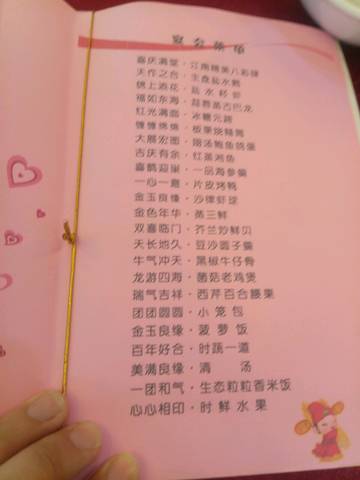 宴会菜单
喜庆满堂·江南精美八彩碟
天作之合·生食盐水鹅
锦上添花·盐水籽虾
福如东海·蒜蓉蒸古巴龙
红光满面·冰糖元蹄
情意绵绵·板栗烧鳝筒
大展宏图·靓汤鲍鱼鸽蛋
吉庆有余·红蒸湘鱼
喜鹊迎巢·一品海参羹
一心一意·片皮烤鸭
金玉良缘·沙律虾球
金色年华·蒸三鲜
双喜临门·芥兰炒鲜贝
天长地久·豆沙圆子羹
牛气冲天·黑椒牛仔骨
龙游四海·菌菇老鸡煲
瑞气吉祥·西芹百合腰果
团团圆圆·小笼包
金玉良缘·菠萝饭
百年好合·时蔬一道
美满良缘·清汤
一团和气·生态粒粒香米饭
心心相印·时鲜水果